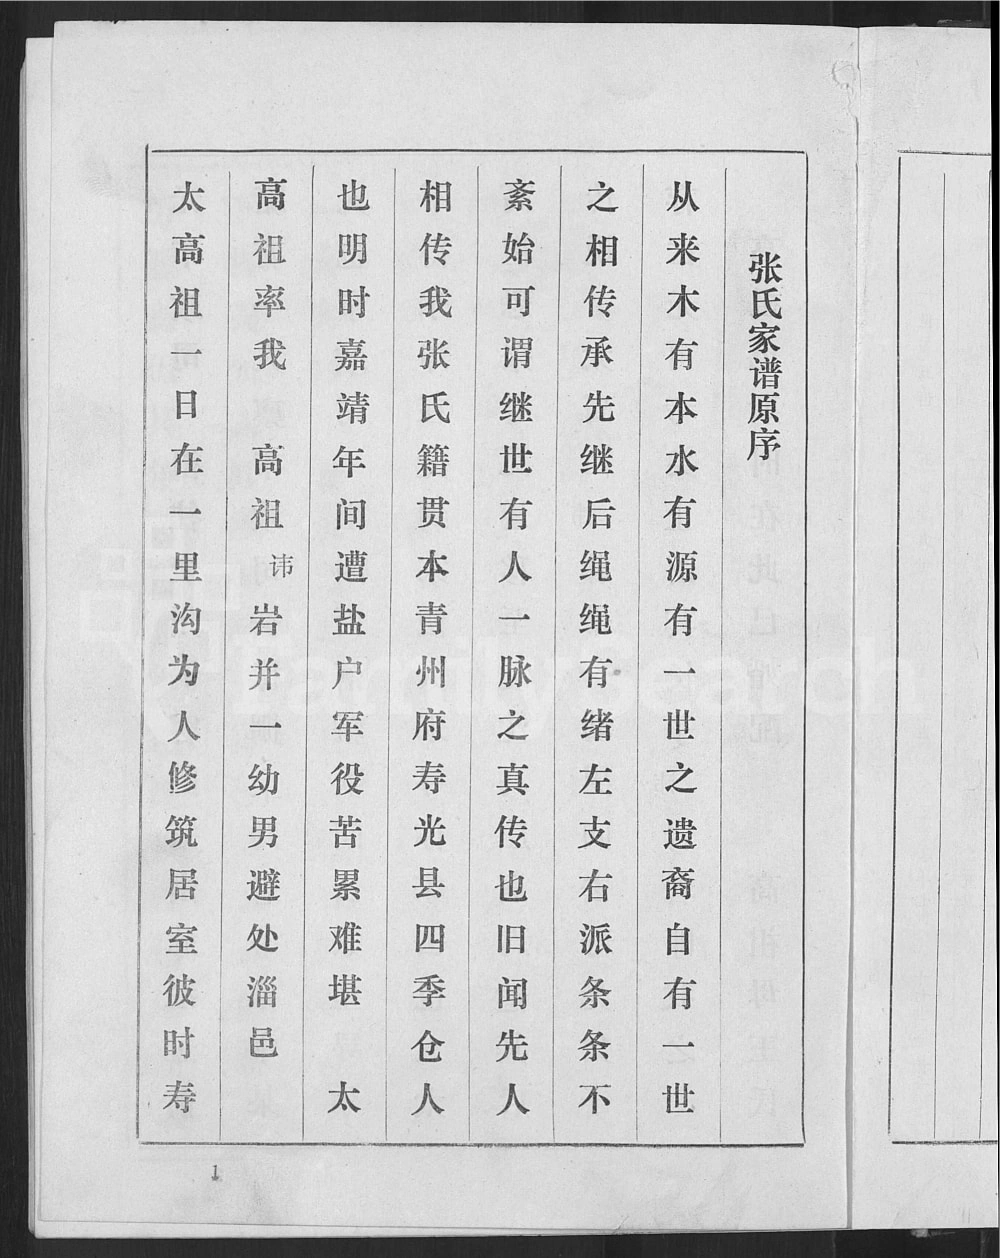 张氏家谱原序
从来木有本水有源有一世之遗裔自有一世
之相传承先继后绳绳有绪左支右派条条不
紊始可谓继世有人一脉之真传也旧闻先人
相传我张氏籍贯本青州府寿光县四季仓人
也明时嘉靖年间遭盐户军役苦累难堪 太
高祖率我 高祖讳岩并一幼男避处淄邑
太高祖一日在一里沟为人修筑居室彼时寿
1